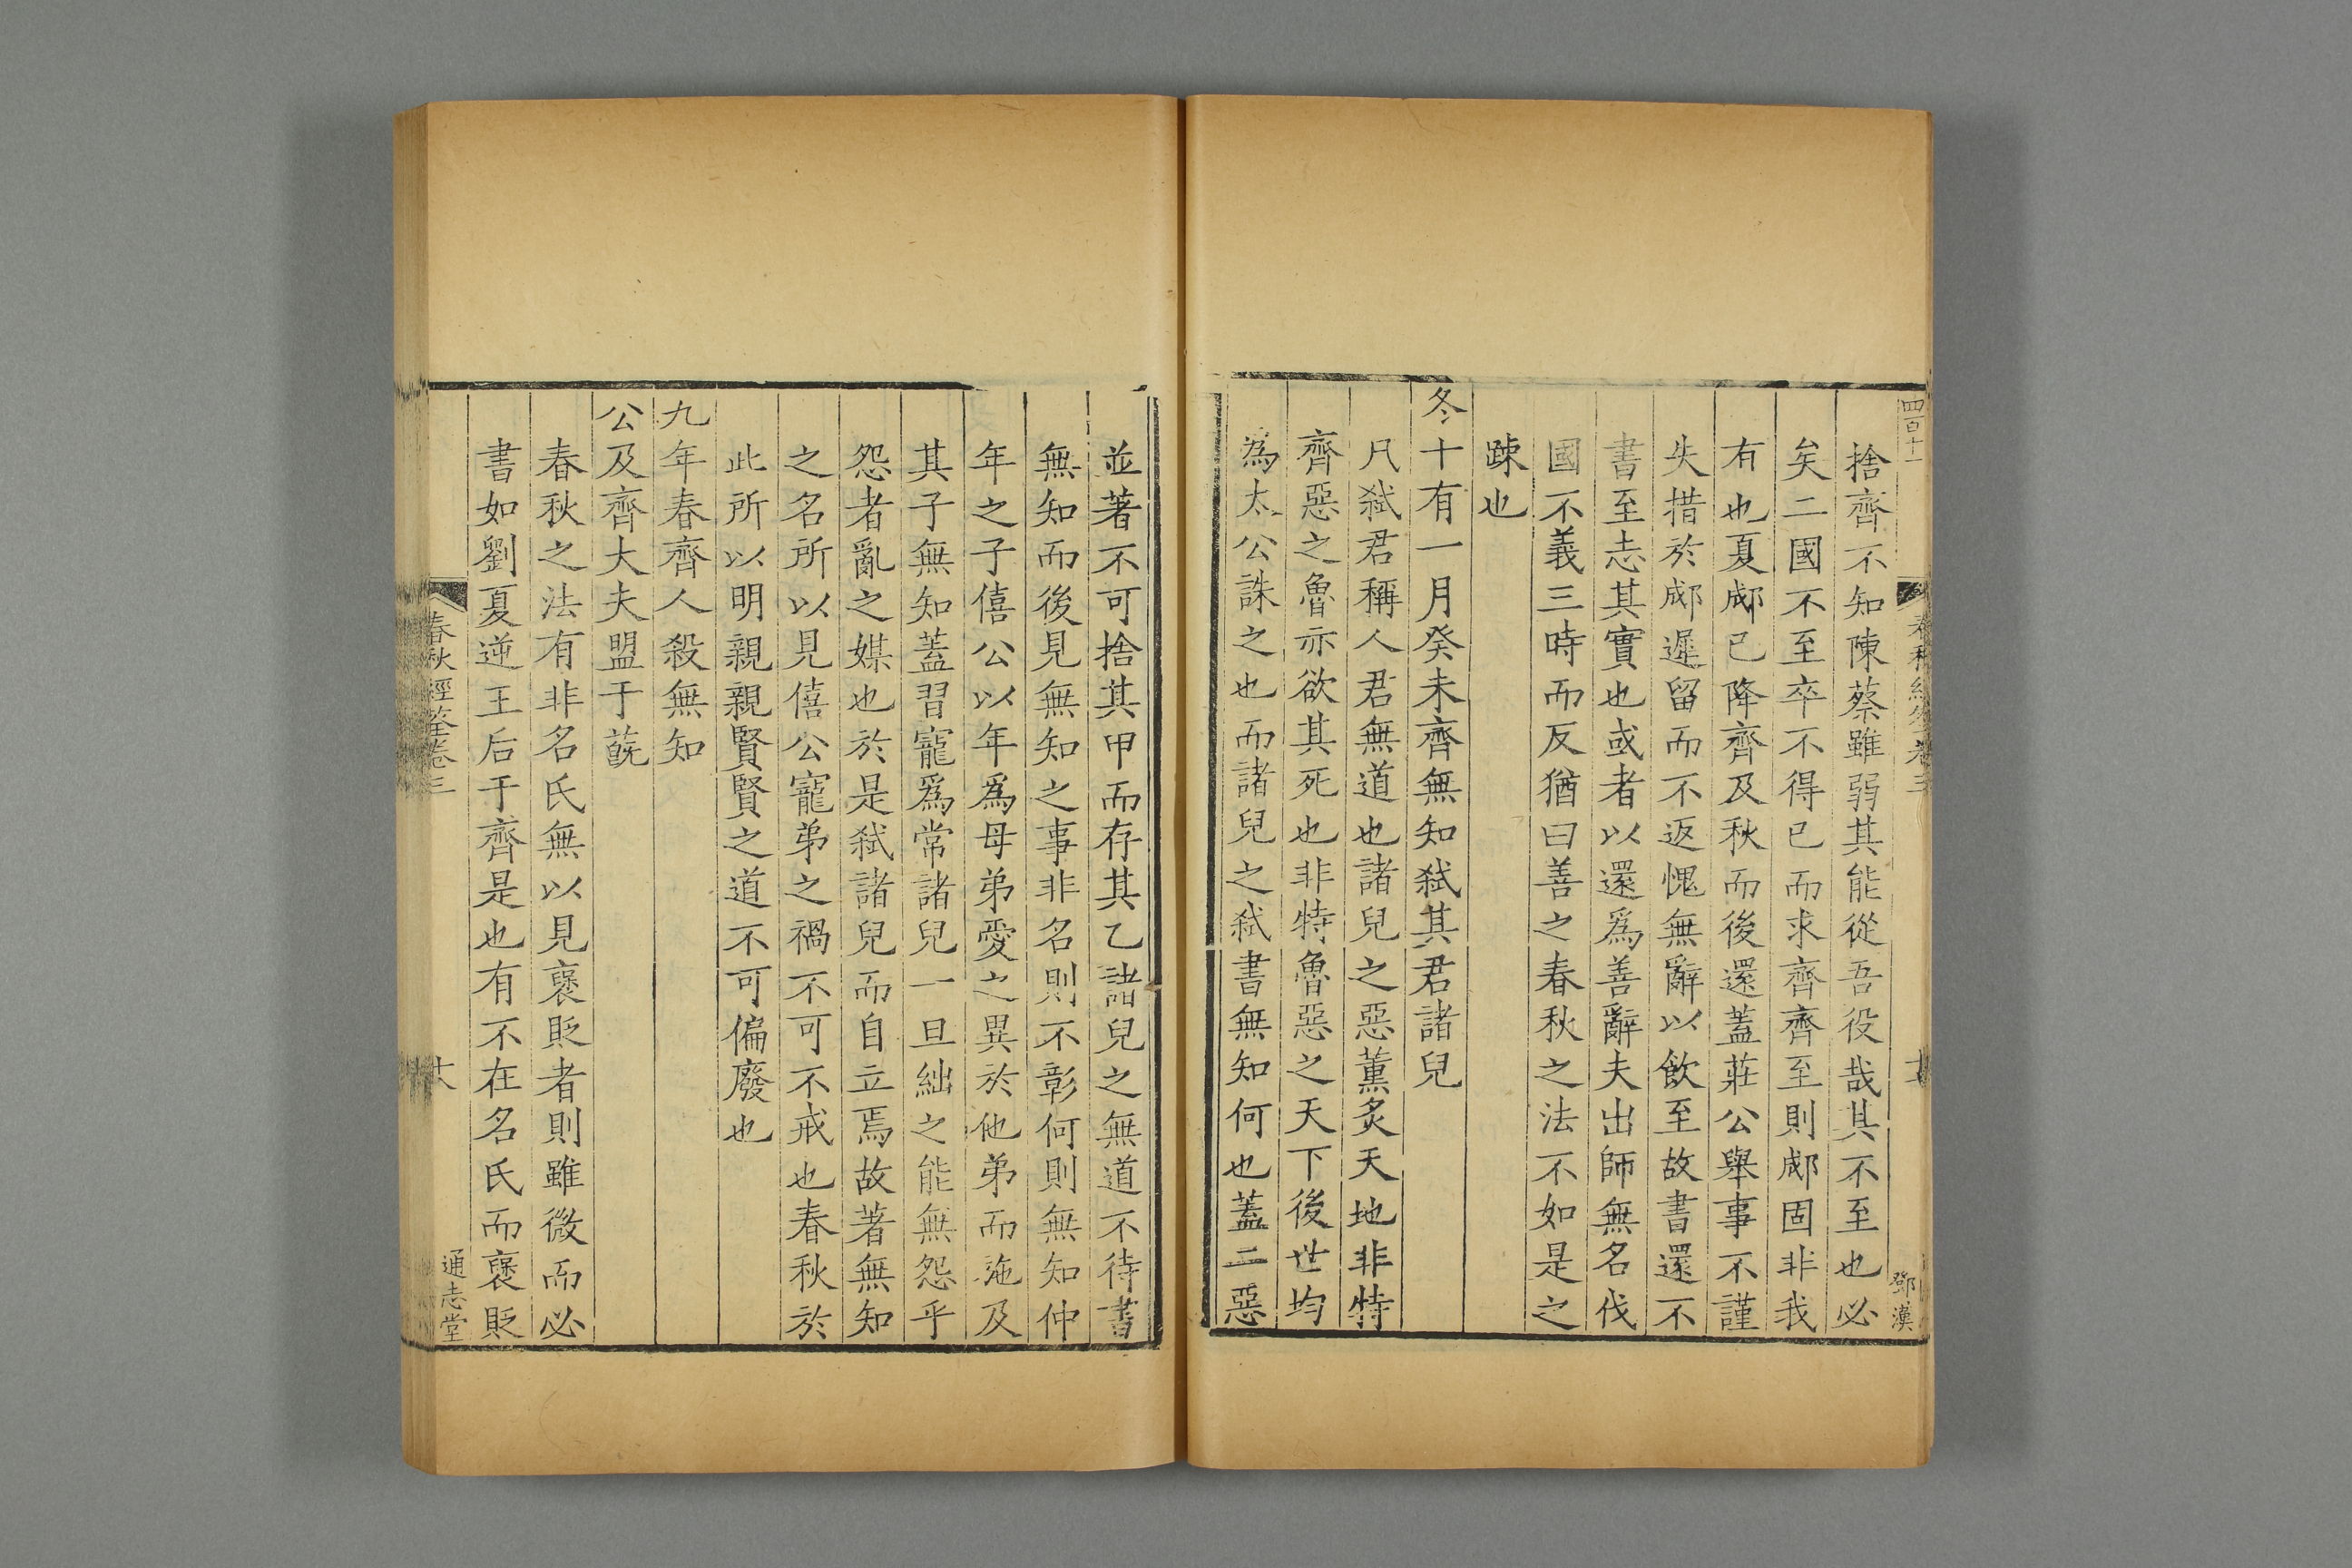 四百十一
春秋經筌卷三
鄧漢
捨齊不知陳蔡雖弱其能從吾役哉其不至也必
矣二國不至卒不得已而求齊齊至則郕固非我
有也夏郕已降齊及秋而後還蓋莊公舉事不謹
失措於郕遲留而不返愧無辭以飲至故書還不
書至志其實也或者以還爲善辭夫出師無名伐
國不義三時而反猶曰善之春秋之法不如是之
踈也
冬十有一月癸未齊無知弑其君諸兒
凡弑君稱人君無道也諸兒之惡薰炙天地非特
齊惡之魯亦欲其死也非特魯惡之天下後世均
為太公誅之也而諸兒之弑書無知何也蓋二惡
並著不可捨其甲而存其乙諸兒之無道不待書
無知而後見無知之事非名則不彰何則無知仲
年之子僖公以年爲母弟愛之異於他弟而施及
其子無知蓋習寵爲常諸兒一旦絀之能無怨乎
怨者亂之媒也於是弑諸兒而自立焉故著無知
之名所以見僖公寵弟之禍不可不戒也春秋於
此所以明親親賢賢之道不可偏廢也
九年春齊人殺無知
公及齊大夫盟于蔇
春秋之法有非名氏無以見褒貶者則雖微而必
書如劉夏逆王后于齊是也有不在名氏而褒貶
春秋經筌卷三
十八
通志堂